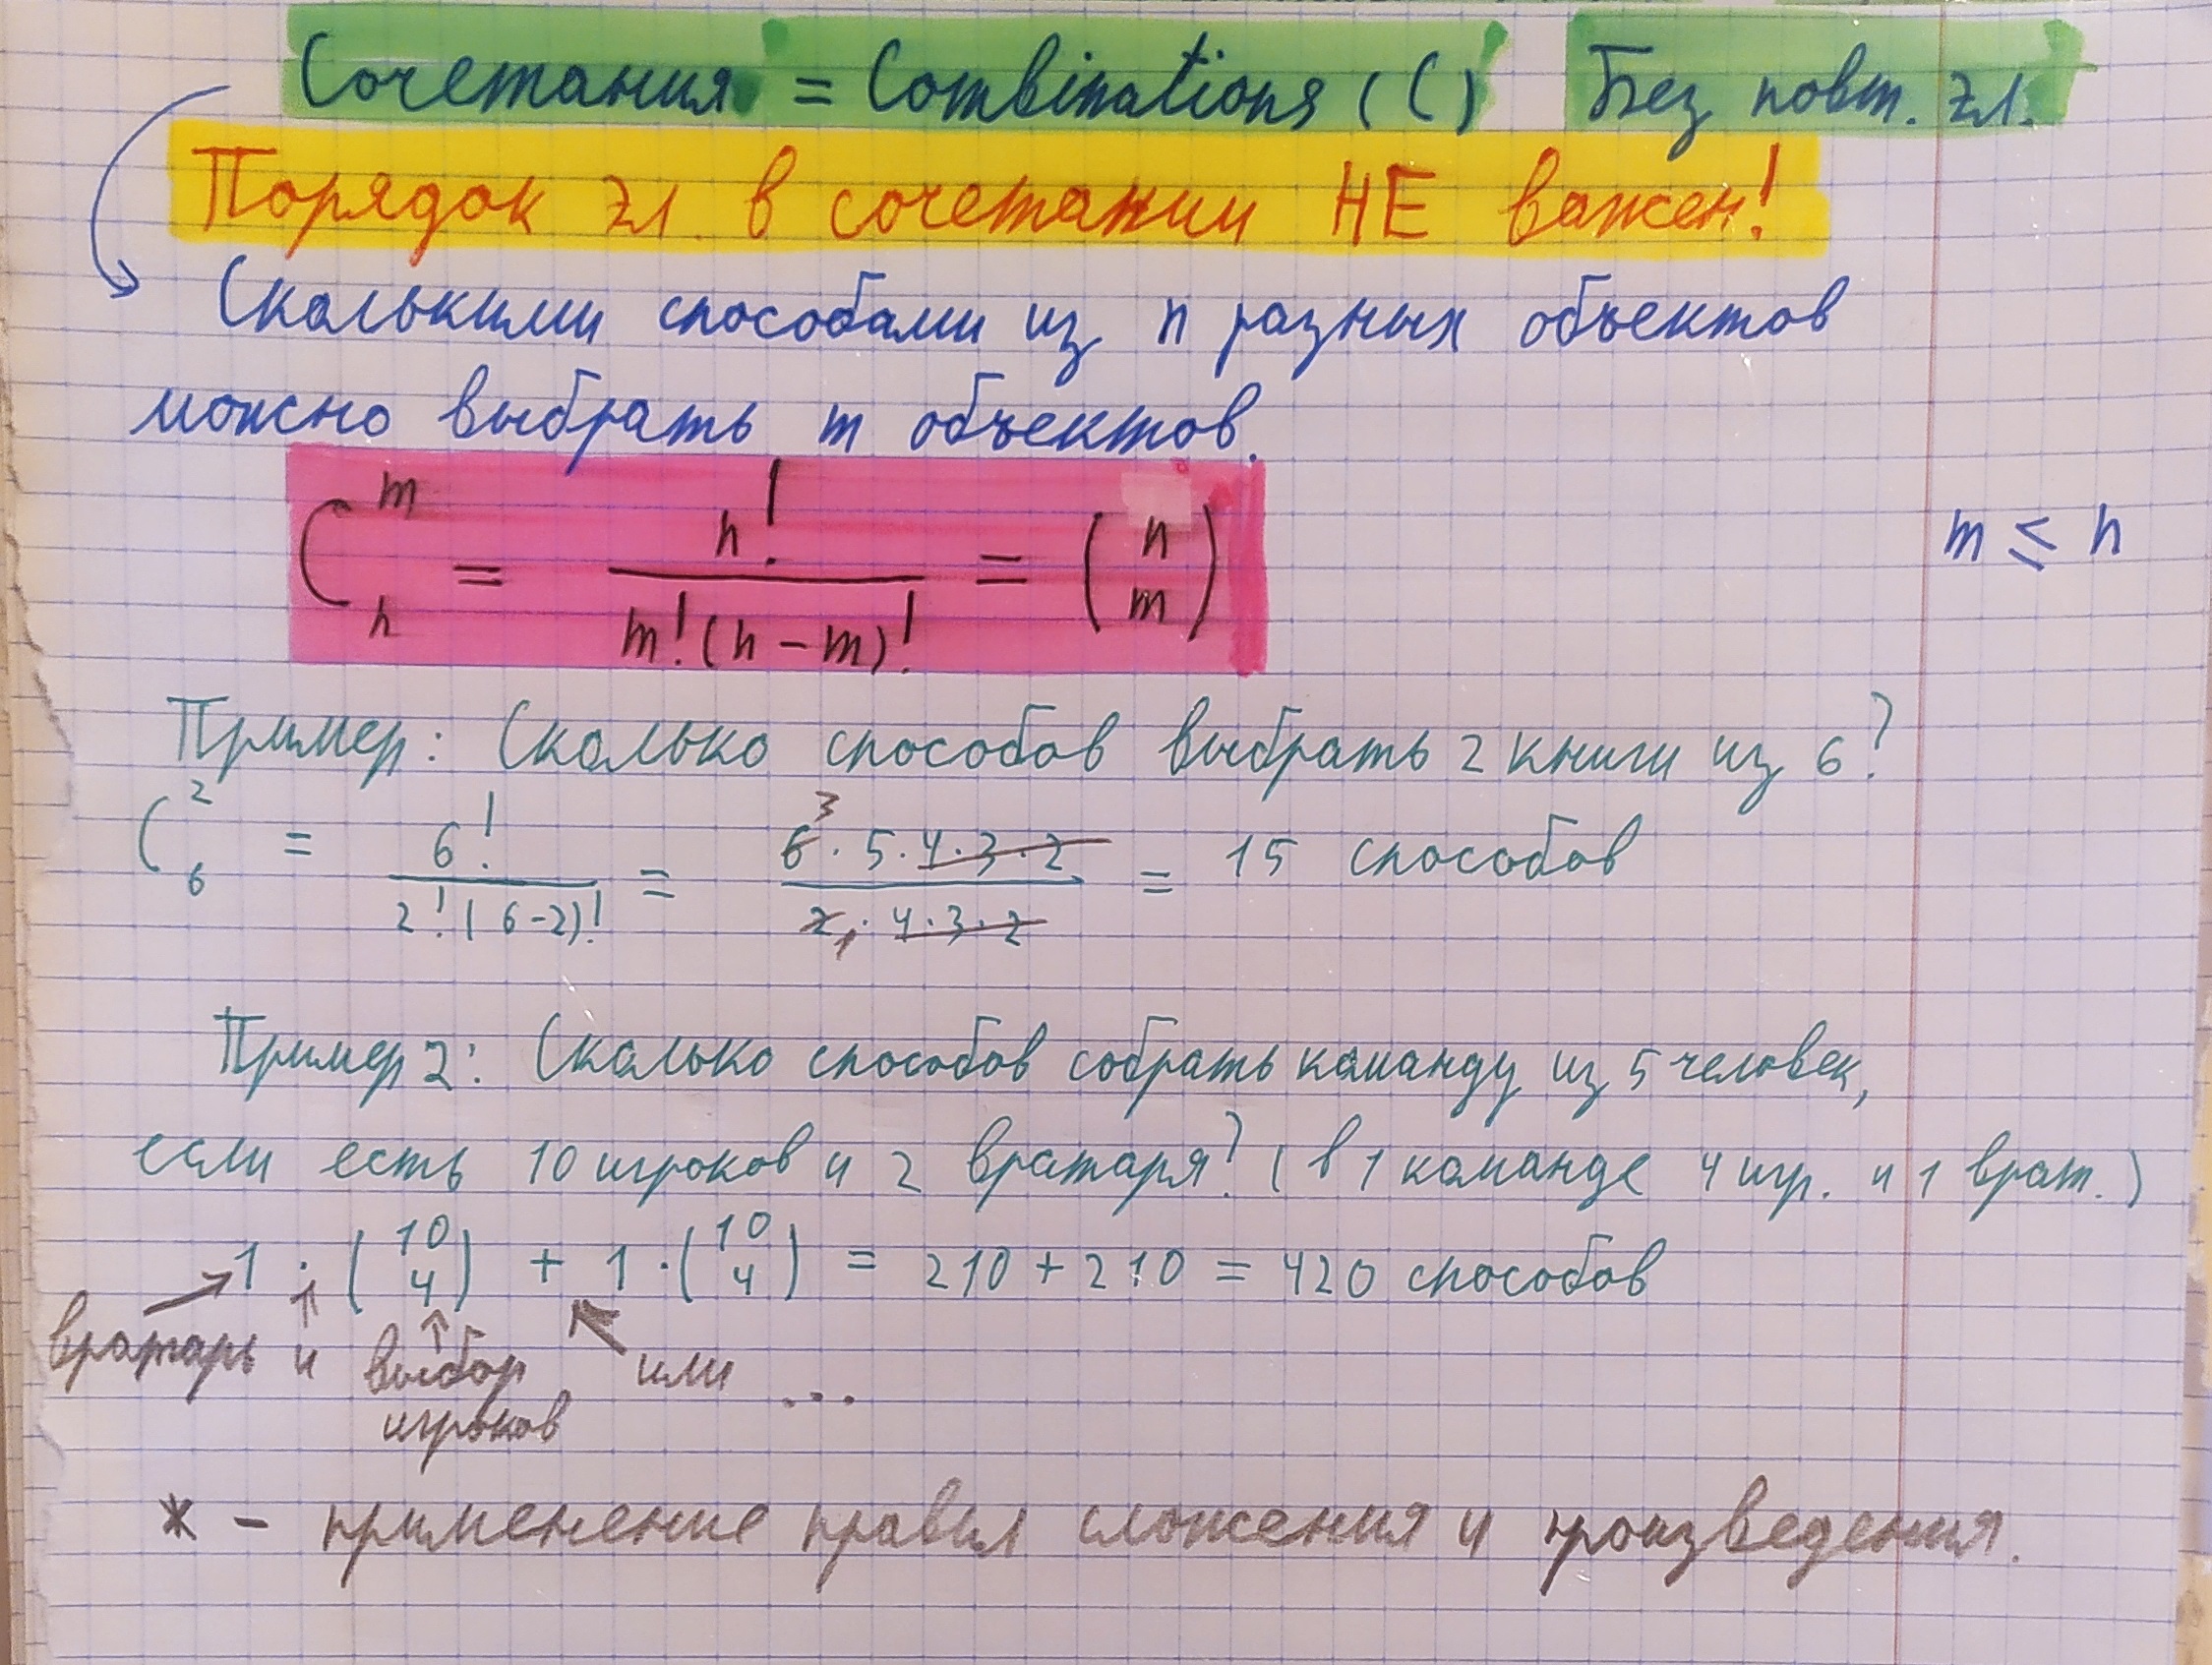 Сочетания = Combinations (C) Без повт. эл.
Порядок эл. в сочетании НЕ важен!
Сколькими способами из n разных объектов
можно выбрать m объектов.
C_n^m = n! / (m!(n-m)!) = (n m)
m ≤ n
Пример: Сколько способов выбрать 2 книги из 6?
C_6^2 = 6! / (2!(6-2)!) = 6 3 · 5 · 4 · 3 · 2 / (2 1 · 4 · 3 · 2) = 15 способов
Пример 2: Сколько способов собрать команду из 5 человек,
если есть 10 игроков и 2 вратаря? (в 1 команде 4 игр. и 1 врат.)
1 · (10 4) + 1 · (10 4) = 210 + 210 = 420 способов
вратарь и выбор или ...
игроков
* - применение правил сложения и произведения.